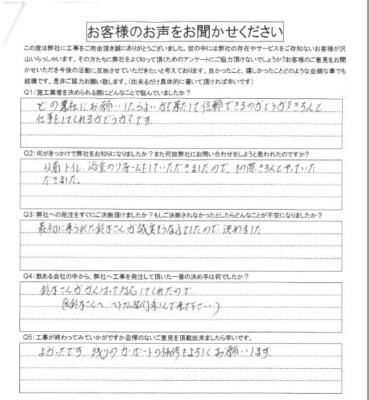 お客様のお声をお聞かせください
この度は弊社に工事をご用命頂き誠にありがとうございました。世の中には弊社の存在やサービスをご存知ないお客様が沢
山いらっしゃいます。その方たちに弊社をよく知って頂くためのアンケートにご協力頂けないでしょうか?お客様のご意見をお聞
かせいただき今後の活動に反映させていただきたいと考えております。良かったこと、嬉しかったことどのような些細な事でも
結構です。是非ご協力お願い致します。(出来るだけ具体的に書いて頂ければ幸いです)
Q1:施工業者を決められる際にどんなことで悩んでいましたか?
どの業社にお願いしたらよいか?果たして信頼できるのかどうか?きちんと
仕事をしてくれるかどうか?です。
Q2:何がきっかけで弊社をお知りになりましたか?また何故弊社にお問い合わせをしようと思われたのですか?
以前トイレ、浴室のリホームをしていただきましたので、その際きちんとやっていた
だきました。
Q3:弊社への発注をすぐにご決断頂けましたか?もしご決断されなかったとしたらどんなことが不安になりましたか?
最初に来られた鈴木さんが誠実そうな でしたので 決めました
Q4:数ある会社の中から、弊社へ工事を発注して頂いた一番の決め手は何でしたか?
鈴木さんががんばって対応してくれたので
(鈴木さんへ、ベトナム 来て下さい)
Q5:工事が終わってみていかがですか忌憚のないご意見を頂戴出来ましたら幸いです。
よかったです。残りのカーポートの補修もよろしくお願いします。